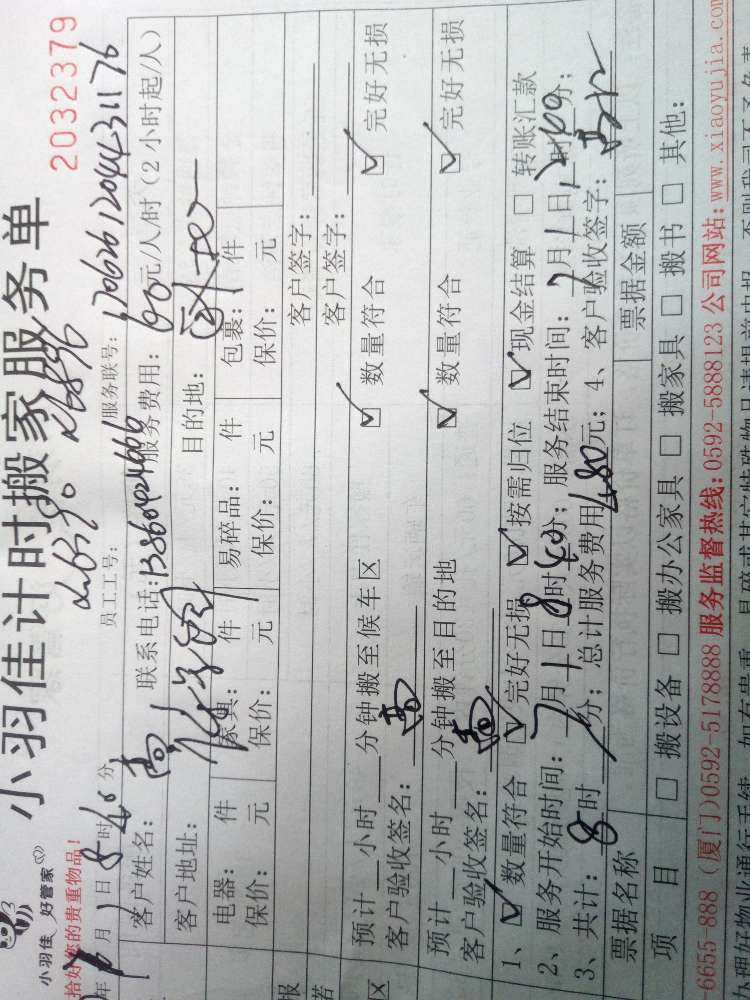 小羽佳计时搬家服务单
2032379
小羽佳 好管家
员工工号: 服务联号: 170626120442311 76
拾好您的贵重物品!
年 月 1 日 8 时 40 分
客户姓名: 高 联系电话: 13860424666 服务费用: 60 元/人/时 (2 小时起/人)
客户地址: 目的地:
电器: 件 家具: 件 易碎品: 件 包裹: 件
保价: 元 保价: 元 保价: 元 保价: 元
报 客户签字:
若 客户签字:
区 预计 小时 分钟搬至候车区 ☑ 数量符合 ☑ 完好无损
客户验收签名: 高
预计 小时 分钟搬至目的地 ☑ 数量符合 ☑ 完好无损
客户验收签名: 高
1、☑ 数量符合 ☑ 完好无损 ☑ 按需归位 ☑ 现金结算 □ 转账汇款
2、服务开始时间: 7 月 1 日 8 时 40 分; 服务结束时间: 7 月 1 日 时 分;
3、共计: 8 时 分; 总计服务费用 480 元; 4、客户验收签字:
票据名称 票据金额
项 目 □ 搬设备 □ 搬办公家具 □ 搬家具 □ 搬书 □ 其他:
6655-888 (厦门)0592-5178888 服务监督热线: 0592-5888123 公司网站: www.xiaoyujia.com
办理好物业通行手续,如有贵重、易碎或其它特殊物品请提前申报,否则我司不负责